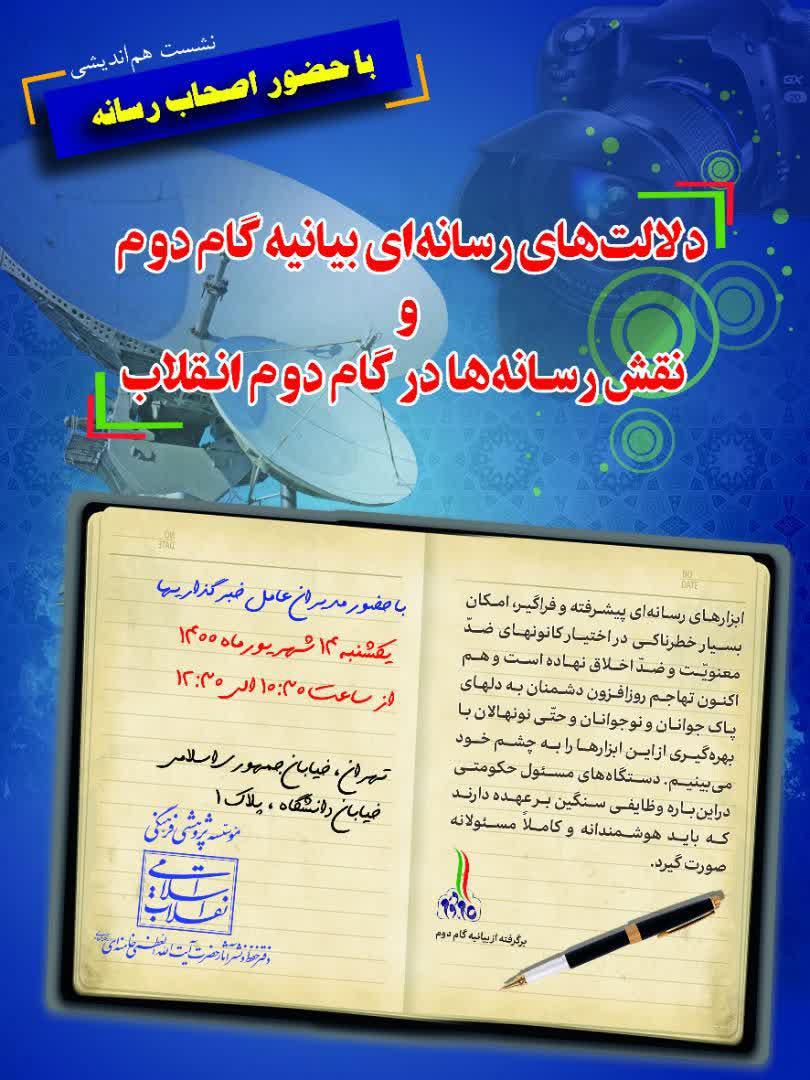 نشست هم‌اندیشی
با حضور اصحاب رسانه
دلالت‌های رسانه‌ای بیانیه گام دوم
و
نقش رسانه‌ها در گام دوم انقلاب
NO
DATE
ابزارهای رسانه‌ای پیشرفته و فراگیر، امکان
بسیار خطرناکی در اختیار کانونهای ضدّ
معنویّت و ضدّ اخلاق نهاده است و هم
اکنون تهاجم روزافزون دشمنان به دلهای
پاک جوانان و نوجوانان و حتّی نونهالان با
بهره‌گیری از این ابزارها را به چشم خود
می‌بینیم. دستگاه‌های مسئول حکومتی
دراین‌باره وظایفی سنگین برعهده دارند
که باید هوشمندانه و کاملاً مسئولانه
صورت گیرد.
برگرفته از بیانیه گام دوم
NO
DATE
با حضور مدیران عامل خبرگذاریها
یکشنبه ۱۴ شهریور ماه ۱۴۰۰
از ساعت ۱۰:۳۰ الی ۱۲:۳۰
تهران، خیابان جمهوری اسلامی
خیابان دانشگاه، پلاک ۱
مؤسسه پژوهشی فرهنگی
انقلاب اسلامی
دفتر حفظ و نشر آثار حضرت آیت الله العظمی خامنه‌ای